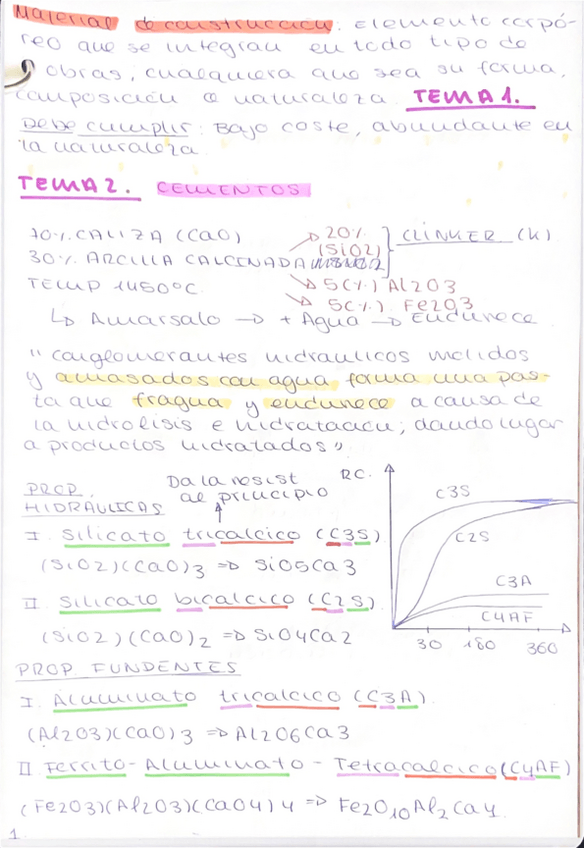 Material de construcción: Elemento corpó-
reo que se integran en todo tipo de
obras, cualquiera que sea su forma,
composición o naturaleza. TEMA 1.
Debe cumplir: Bajo coste, abundante en
la naturaleza.
TEMA 2. CEMENTOS
70% CALIZA (CaO)
30% ARCILLA CALCINADA
20% (SiO2)
5(%) Al2O3
5(%) Fe2O3
CLINKER (K)
TEMP 1450°C.
↳ Amarsalo → + Agua → Endurece
"Conglomerantes hidraulicos molidos
y amasados con agua forma una pas-
ta que fragua y endurece a causa de
la hidrolisis e hidratación; dando lugar
a productos hidratados".
PROP. HIDRAULICAS
Da la resist
al principio
I. Silicato tricalcico (C3S)
(SiO2)(CaO)3 => SiO5Ca3
II. Silicato bicalcico (C2S)
(SiO2)(CaO)2 => SiO4Ca2
RC.
C3S
C2S
C3A
C4AF
30 180 360
PROP. FUNDENTES
I. Aluminato tricalcico (C3A).
(Al2O3)(CaO)3 => Al2O6Ca3
II Ferrito-Aluminato-Tetracalcico (C4AF)
(Fe2O3)(Al2O3)(CaO4)4 => Fe2O10Al2Ca4.
1.